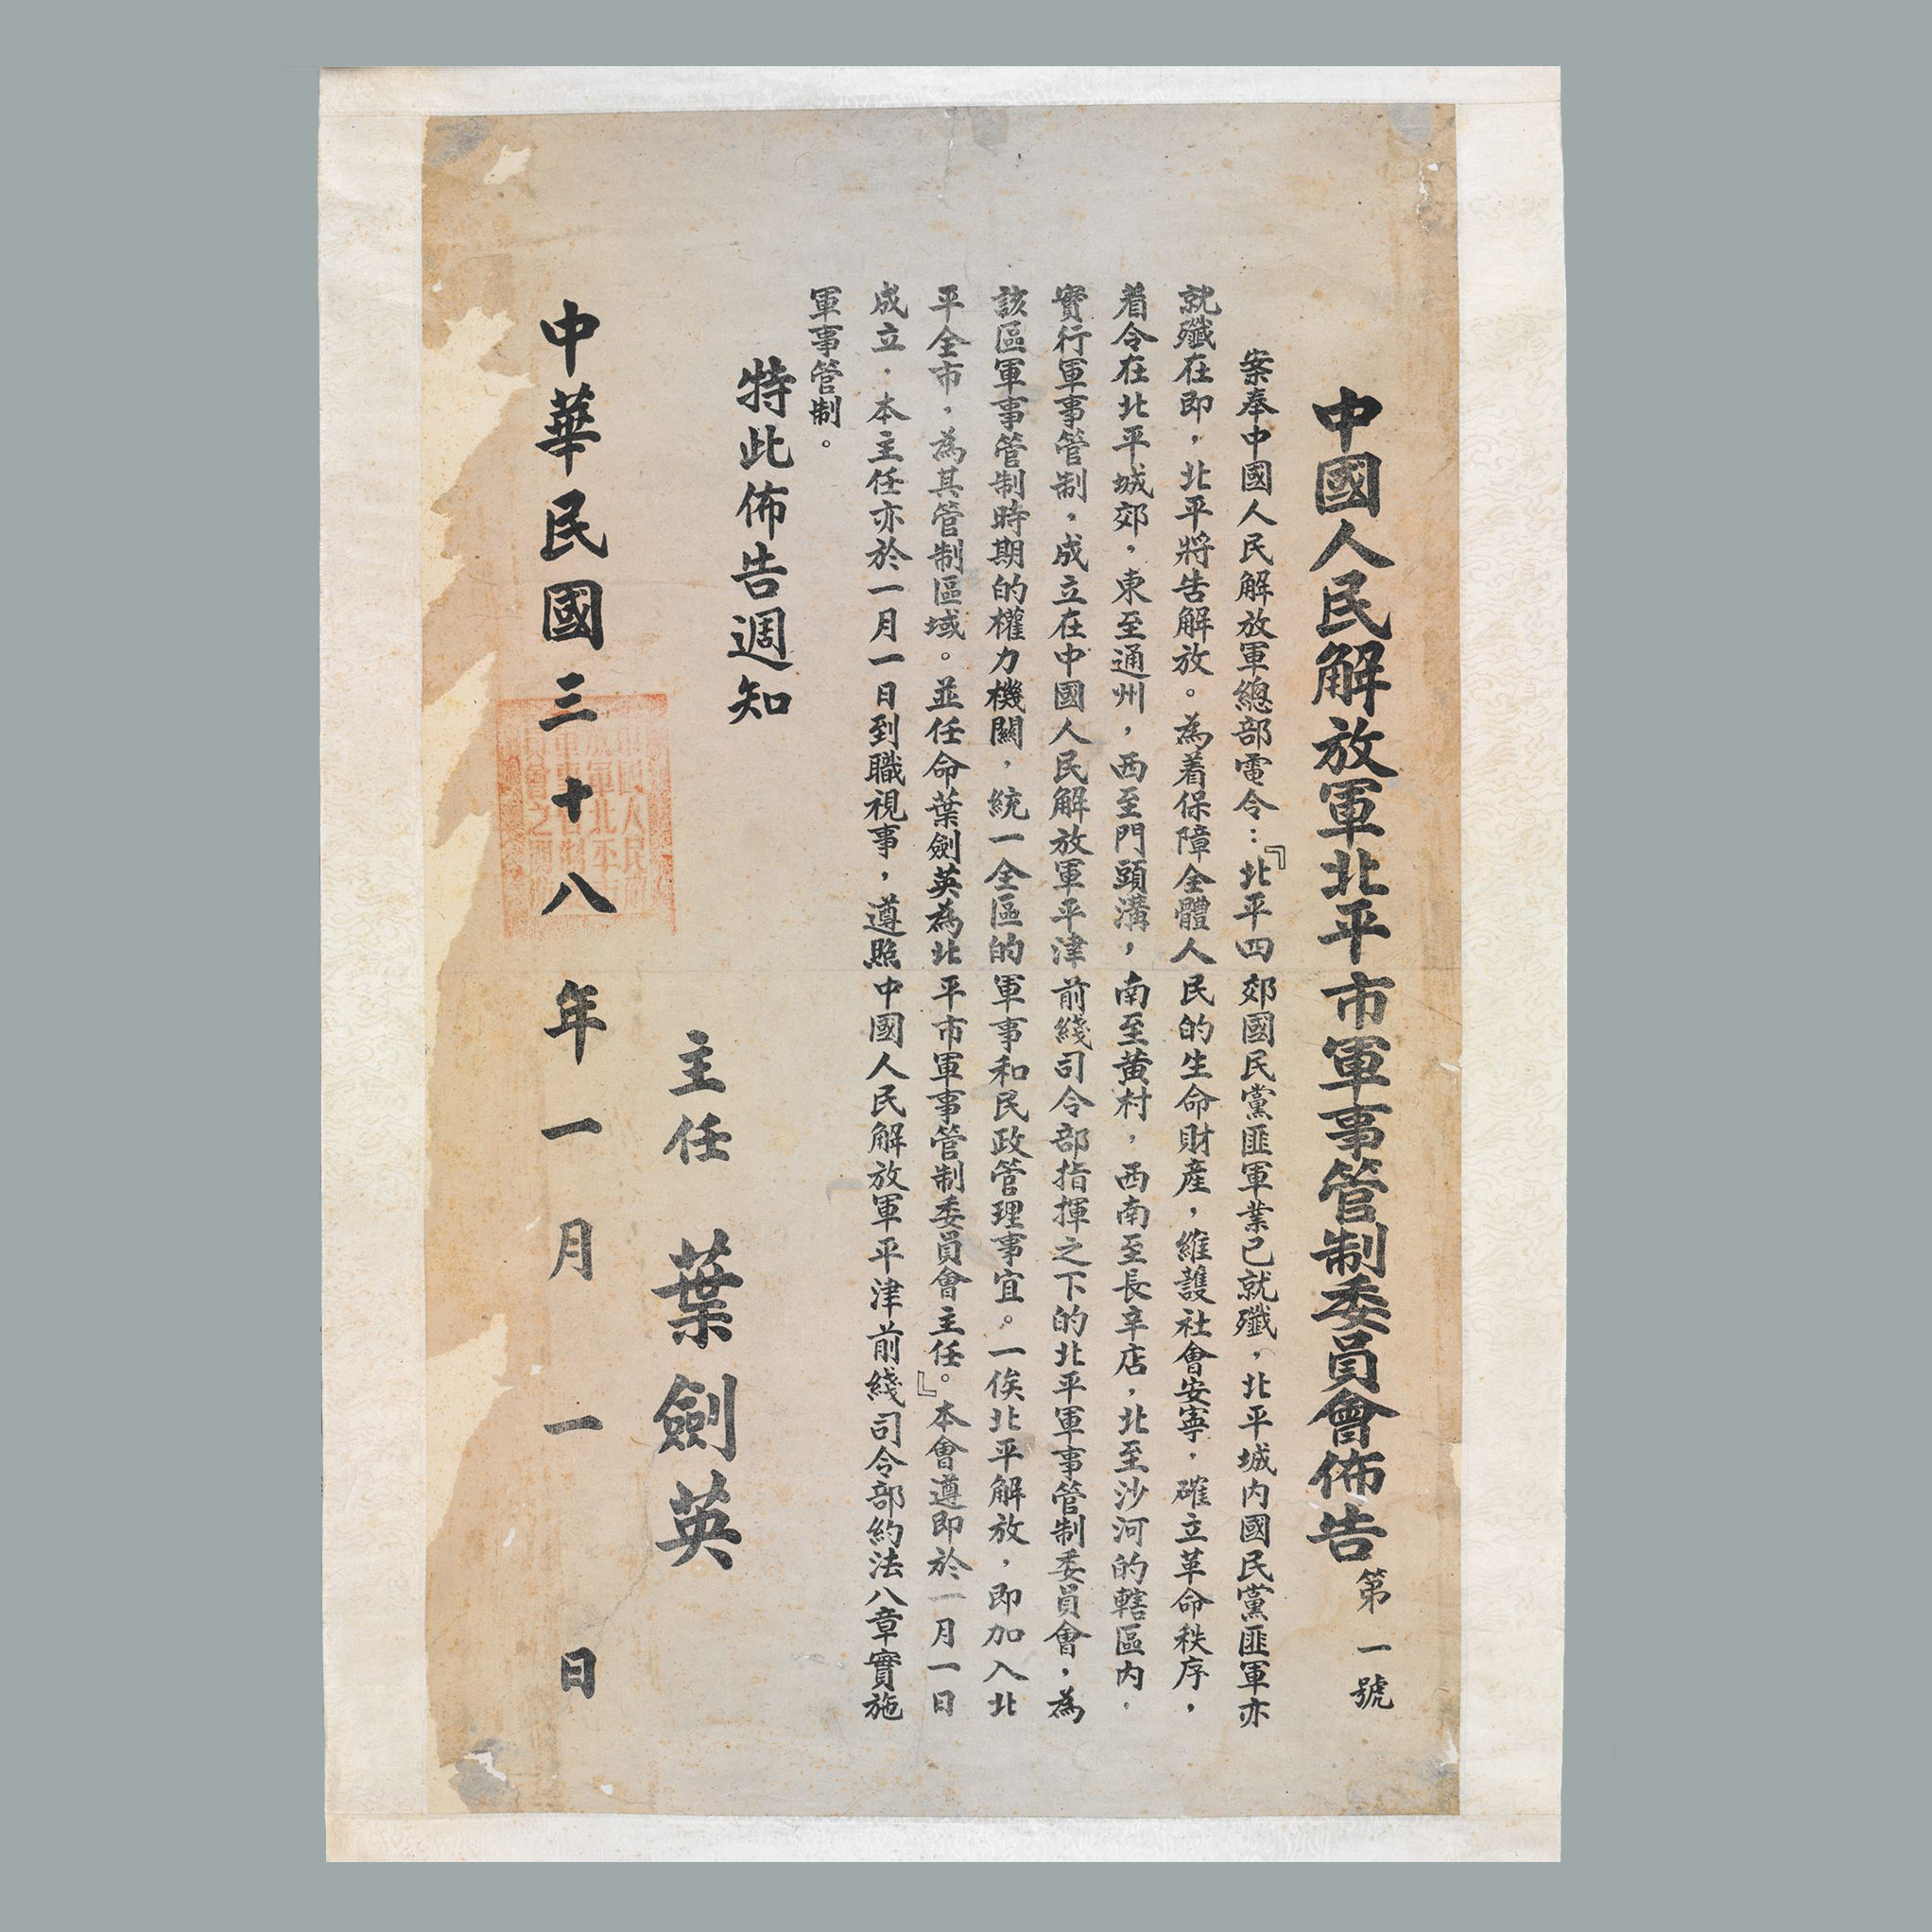 中國人民解放軍北平市軍事管制委員會佈告 第一號
案奉中國人民解放軍總部電令：『北平四郊國民黨匪軍業已就殲，北平城內國民黨匪軍亦
就殲在即，北平將告解放。為着保障全體人民的生命財產，維護社會安寧，確立革命秩序，
着令在北平城郊，東至通州，西至門頭溝，南至黃村，西南至長辛店，北至沙河的轄區內，
實行軍事管制，成立在中國人民解放軍平津前綫司令部指揮之下的北平軍事管制委員會，為
該區軍事管制時期的權力機關，統一全區的軍事和民政管理事宜。一俟北平解放，即加入北
平全市，為其管制區域。並任命葉劍英為北平市軍事管制委員會主任。』本會遵即於一月一日
成立．本主任亦於一月一日到職視事，遵照中國人民解放軍平津前綫司令部約法八章實施
軍事管制。
特此佈告週知
主任 葉劍英
中華民國三十八年一月一日